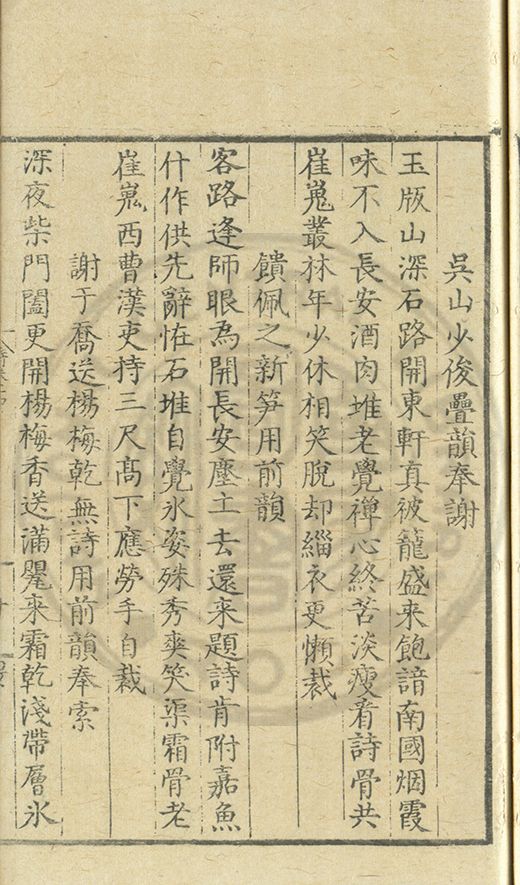 吳山少俊疊韻奉謝
玉版山深石路開東軒真被籠盛来飽諳南國烟霞
味不入長安酒肉堆老覺禪心終苦淡瘦看詩骨共
崔嵬叢林年少休相笑脫却緇衣更懶裁
饋佩之新笋用前韻
客路逢師眼為開長安塵土去還来題詩肯附嘉魚
什作供先辭恠石堆自覺氷姿殊秀爽笑渠霜骨老
崔嵬西曹漢吏持三尺髙下應勞手自裁
謝于喬送楊梅乾無詩用前韻奉索
深夜柴門闔更開楊梅香送滿罌来霜乾淺帶層氷